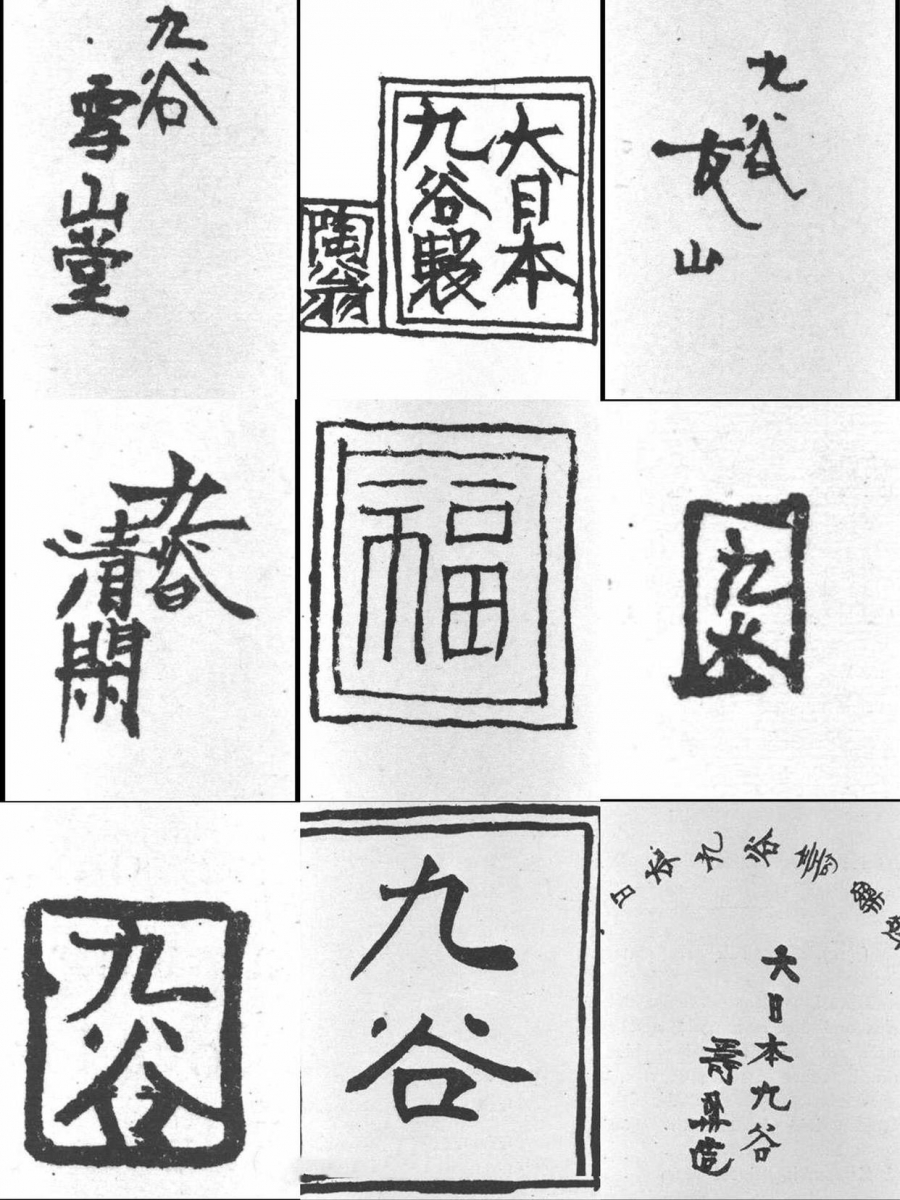 九谷
雪山堂
大日本
九谷製
陶翁
九谷
友山
九谷
清閑
福
九谷
九谷
九谷
日本九谷寿
大日本九谷
寿楽造